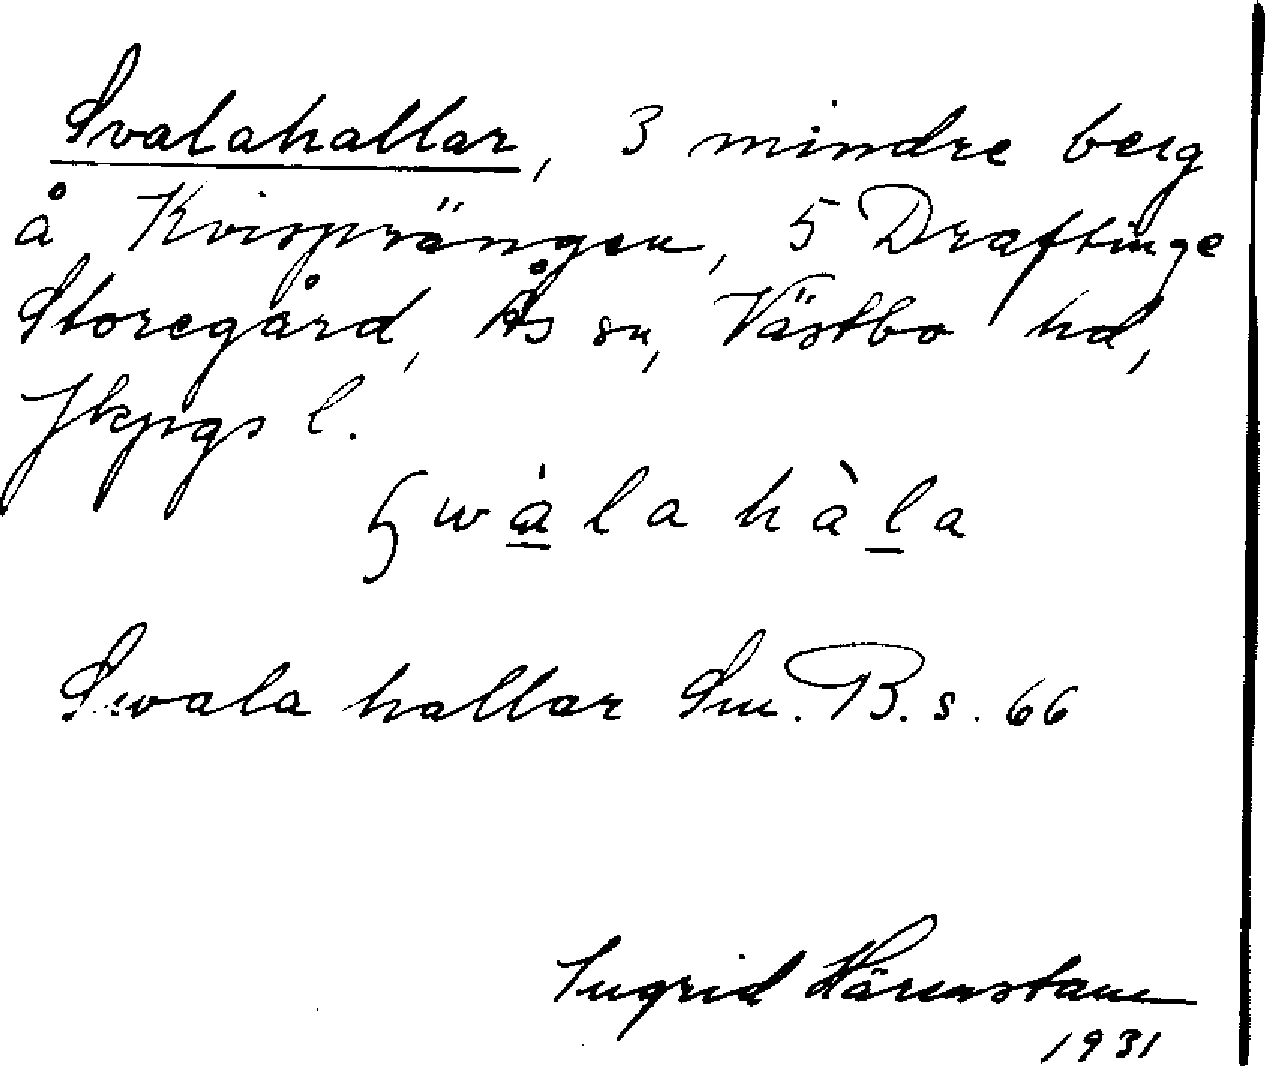 Svalahallar, 3 mindre berg
å Kvisprängen, 5 Draftinge
Storegård, Ås sn, Västbo hd,
Jkpgs l.
ʕwàlahàla
Swala hallar Sm. B. s. 66
Ingrid Härenstam
1931